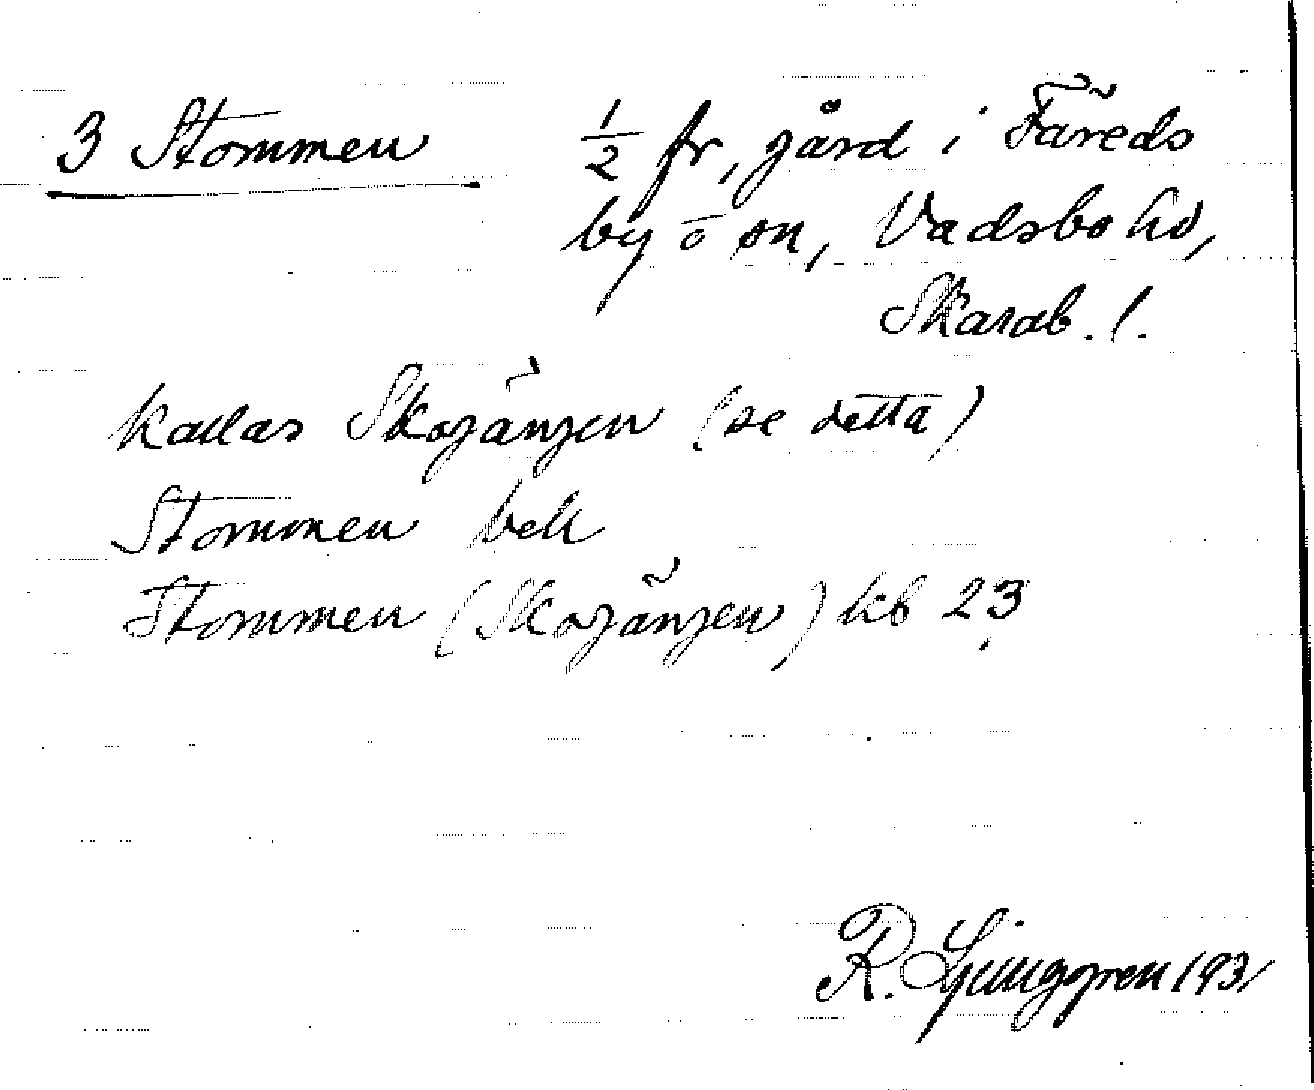 3 Stommen ½ fr, gård i Färeds
by o sn, Vadsbo hd,
Skarab. l.
kallas Skogängen (se detta)
Stommen bek
Stommen (Skogängen) kb 23
R. Ljunggren 1931